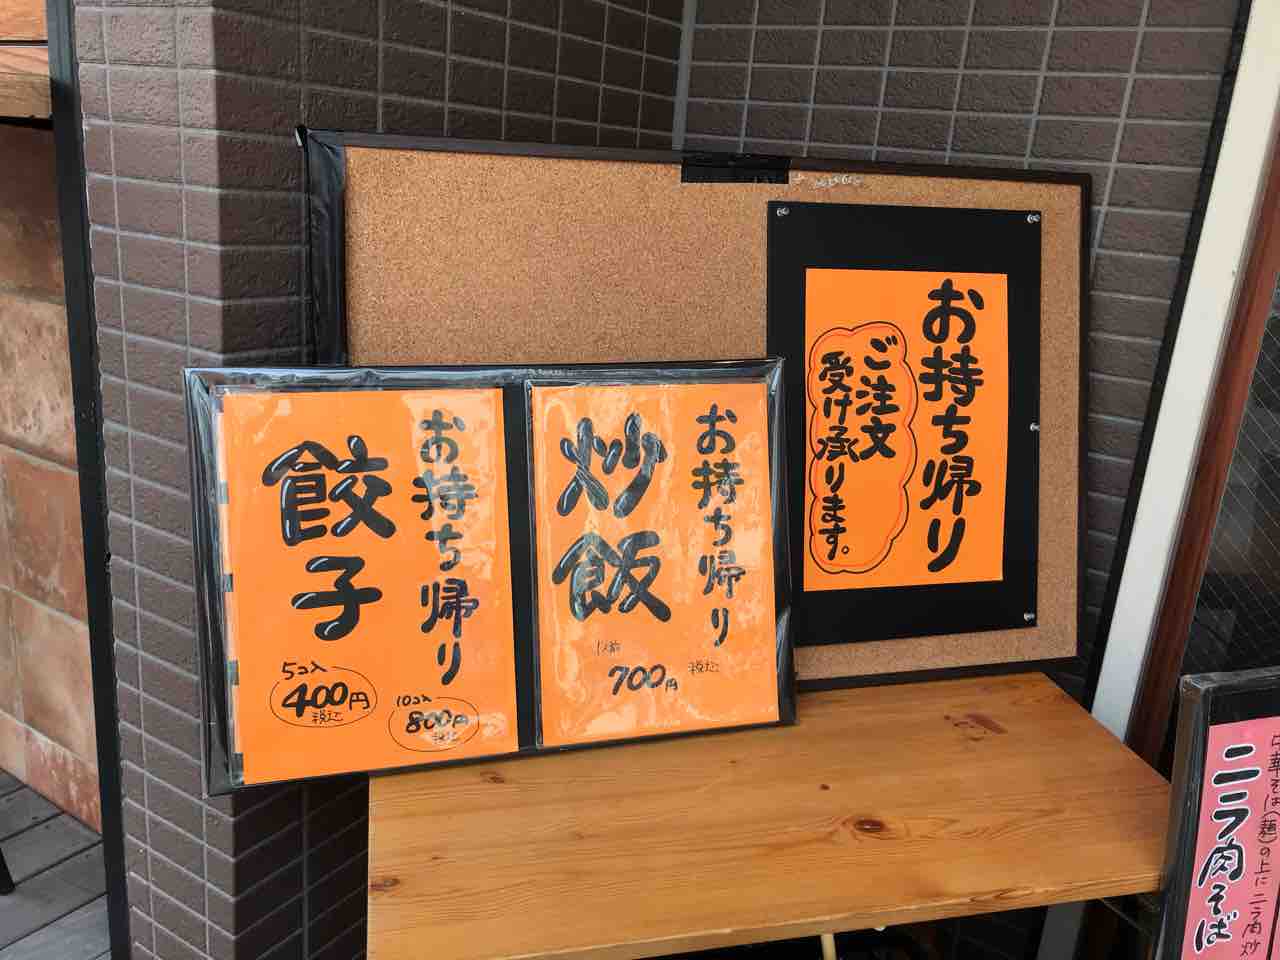 お持ち帰り
餃子
5コ入
400円
税込
10コ入
800円
税込
お持ち帰り
炒飯
1人前
700円
税込
お持ち帰り
ご注文
受け承ります。
中華そば(麺)の上にニラ肉炒
ニラ肉そば